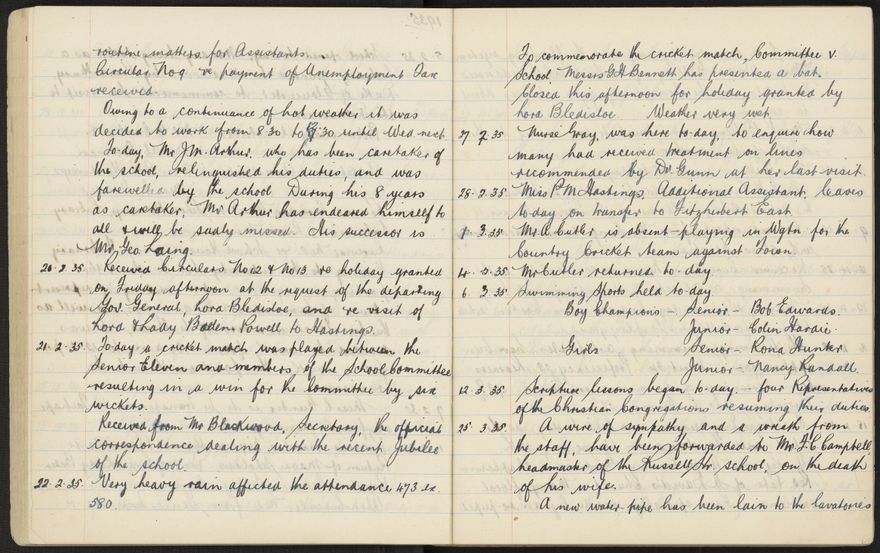 routine matters for Assistants.
Circular No 9 re payment of Unemployment Tax
received
Owing to a continuance of hot weather it was
decided to work from 8.30 to 12.30 until Wed next
To-day, Mr J.M. Arthur, who has been caretaker of
the school, relinquished his duties, and was
farewelled by the school. During his 8 years
as caretaker, Mr Arthur has endeared himself to
all & will be sadly missed. His successor is
Mr Geo. Laing.
20.2.35 Received Circulars No 12 & No 13 re holiday granted
on Friday afternoon at the request of the departing
Gov. General, Lord Bledisloe, and re visit of
Lord & Lady Baden Powell to Hastings.
21.2.35 To-day a cricket match was played between the
Senior Eleven and members of the School Committee
resulting in a win for the Committee by six
wickets.
Received from Mr Blackwood, Secretary, the official
correspondence dealing with the recent Jubilee
of the school.
22.2.35 Very heavy rain affected the attendance 473 ex
580.
1935.
To commemorate the cricket match, Committee v.
School Messrs G.H. Bennett has presented a bat.
Closed this afternoon for holiday granted by
Lord Bledisloe. Weather very wet.
27.2.35 Nurse Gray, was here to-day, to enquire how
many had received treatment on lines
recommended by Dr Gunn at her last visit.
28.2.35 Miss P.M. Hastings, Additional Assistant, leaves
to-day on transfer to Fitzherbert East.
1.3.35 Mr A. Cutler is absent - playing in Wgtn for the
Country Cricket team against Town
4.3.35 Mr Cutler returned to-day
6.3.35 Swimming Sports held to-day
Boy Champions - Senior - Bob Edwards.
Junior - Colin Hardie.
Girls Senior - Rona Hunter
Junior - Nancy Randall.
12.3.35 Scripture lessons began to-day - four Representatives
of the Christian Congregations resuming their duties.
25.3.35 A wire of sympathy and a wreath from
the staff, have been forwarded to Mr. F.C. Campbell,
headmaster of the Russell St. school, on the death
of his wife.
A new water-pipe has been lain to the lavatories